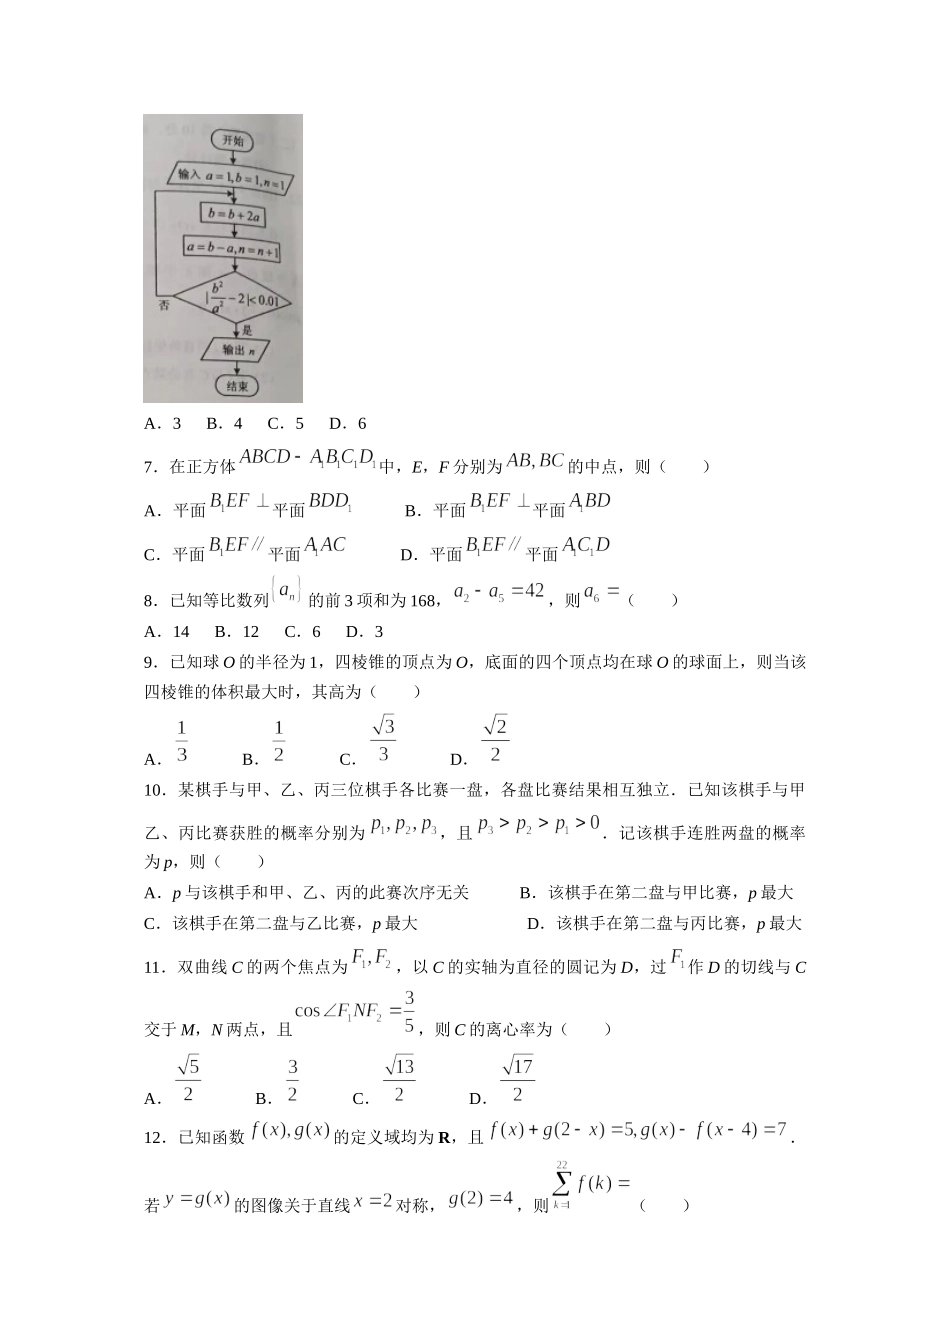 开始
输入 a=1,b=1,n=1
b=b+2a
a=b-a,n=n+1
|b²/a²-2|<0.01
否
是
输出 n
结束
A．3 B．4 C．5 D．6
7．在正方体ABCD-A₁B₁C₁D₁中，E，F 分别为AB,BC的中点，则（ ）
A．平面B₁EF⊥平面BDD₁ B．平面B₁EF⊥平面A₁BD
C．平面B₁EF∥平面A₁AC D．平面B₁EF∥平面A₁C₁D
8．已知等比数列{aₙ}的前 3 项和为 168，a₂-a₅=42，则a₆=（ ）
A．14 B．12 C．6 D．3
9．已知球 O 的半径为 1，四棱锥的顶点为 O，底面的四个顶点均在球 O 的球面上，则当该
四棱锥的体积最大时，其高为（ ）
A．1/3 B．1/2 C．√3/3 D．√2/2
10．某棋手与甲、乙、丙三位棋手各比赛一盘，各盘比赛结果相互独立．已知该棋手与甲
乙、丙比赛获胜的概率分别为p₁,p₂,p₃，且p₃>p₂>p₁>0．记该棋手连胜两盘的概率
为 p，则（ ）
A．p 与该棋手和甲、乙、丙的此赛次序无关 B．该棋手在第二盘与甲比赛，p 最大
C．该棋手在第二盘与乙比赛，p 最大 D．该棋手在第二盘与丙比赛，p 最大
11．双曲线 C 的两个焦点为F₁,F₂，以 C 的实轴为直径的圆记为 D，过F₁作 D 的切线与 C
交于 M，N 两点，且cos∠F₁NF₂=3/5，则 C 的离心率为（ ）
A．√5/2 B．3/2 C．√13/2 D．√17/2
12．已知函数f(x),g(x)的定义域均为 R，且f(x)+g(2-x)=5,g(x)-f(x-4)=7．
若y=g(x)的图像关于直线x=2对称，g(2)=4，则∑_{k=1}^{22}f(k)=（ ）